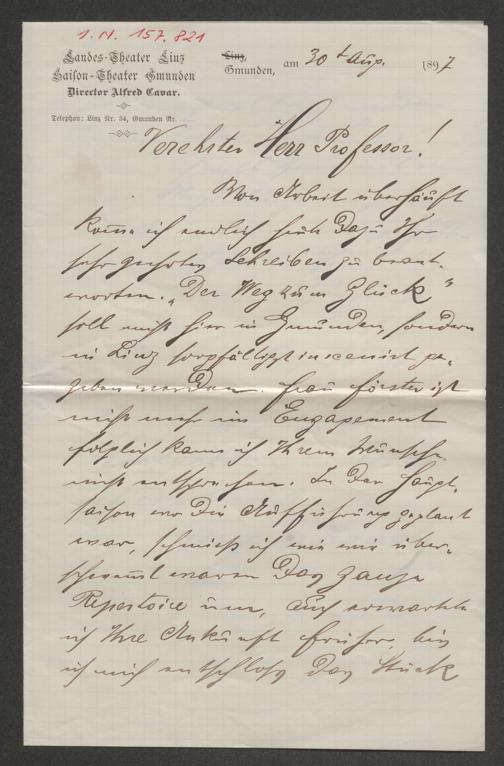 I. N. 157.821
Landes-Theater Linz
Saison-Theater Gmunden
Director Alfred Cavar.
Telephon: Linz Nr. 34, Gmunden Nr.
Linz,
Gmunden, am 30t Aug. 1897
Verehrter Herr Professor!
Von Arbeit überhäuft
komme ich endlich heute dazu Ihr
sehr geehrtes Schreiben zu beant-
worten. „Der Weg zum Glück"
soll nicht hier in Gmunden, sondern
in Linz sorgfältigst inscenirt ge-
geben werden. Frau Förster ist
nicht mehr im Engagement
folglich kann ich Ihrem Wunsche
nicht entsprechen. In der Haupt-
saison wo die Aufführung geplant
war, schmiß ich wie wir über-
schwemmt waren das ganze
Repertoire um, auch erwartete
ich Ihre Ankunft früher, bis
ich mich entschloß das Stück